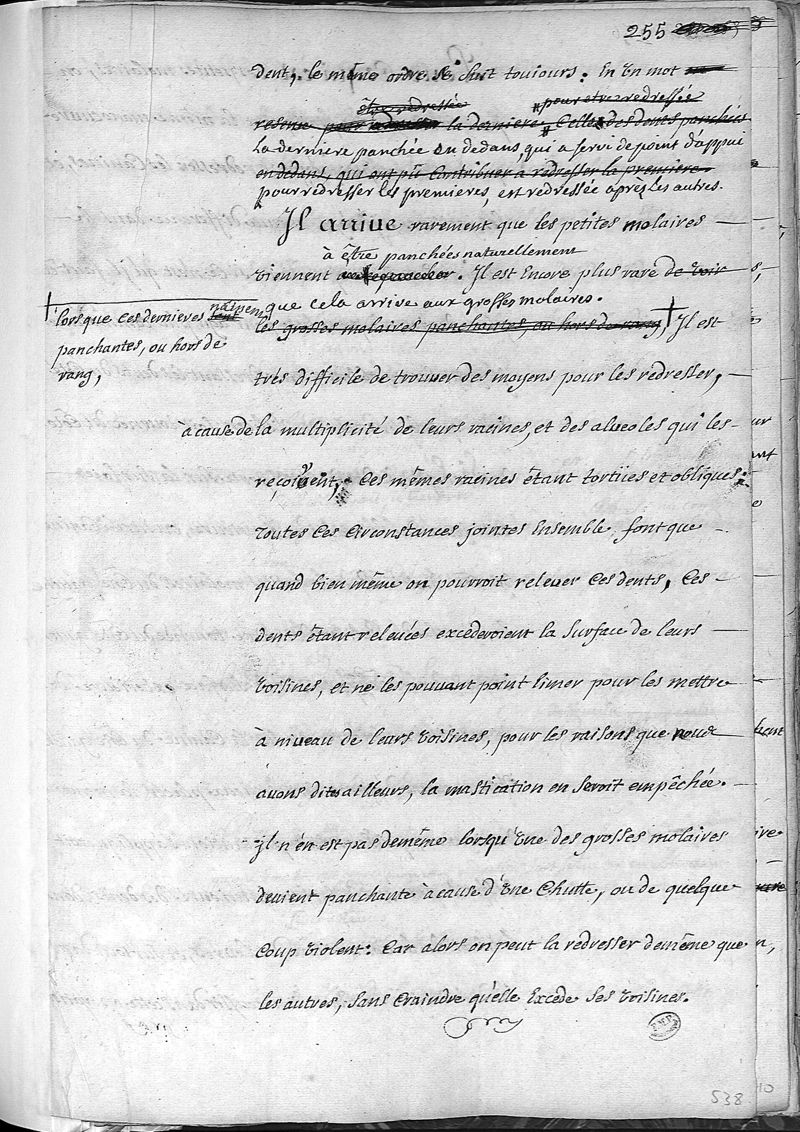 255
dent, le même ordre se suit toujours. En un mot
être redressée pour etre redressée
reserve pour redresser la derniere. Celles des dents panchées
La derniere panchée en dedans, qui a servi de point d'appui
en dedans, qui ont pû contribuer a redresser la premiere
pour redresser les premieres, est redressée après les autres.
Il arrive rarement que les petites molaires
à être panchées naturellement
viennent . Il est encore plus rare de voir
que cela arrive aux grosses molaires.
les grosses molaires panchantes, ou hors de rang † Il est
† lorsque ces dernieres naissent
panchantes, ou hors de
rang,
très difficile de trouver des moyens pour les redresser,
à cause de la multiplicité de leurs racines, et des alueoles qui les
reçoivent, ces mêmes racines étant tortües et obliques:
toutes ces circonstances jointes ensemble font que
quand bien même on pourroit releuer ces dents, ces
dents étant releuées excederoient la surface de leurs
voisines, et ne les pouvant point limer pour les mettre
à niveau de leurs voisines, pour les raisons que nous
auons dites ailleurs, la mastication en seroit empêchée.
il n'en est pas de même lorsqu'une des grosses molaires
devient panchante à cause d'une chutte, ou de quelque
coup violent: car alors on peut la redresser de même que
les autres, sans craindre qu'elle excede ses voisines.
538